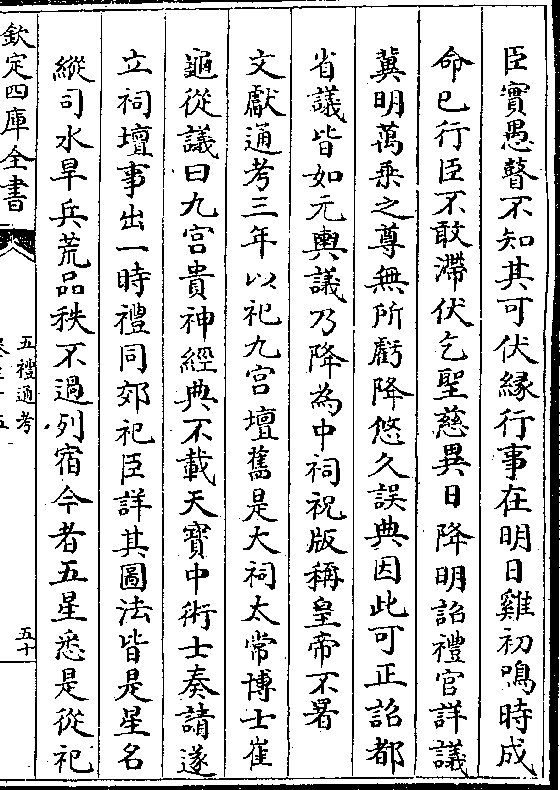 臣實愚瞽不知其可伏緣行事在明日雞初鳴時成
命已行臣不敢滯伏乞聖慈異日降明詔禮官詳議
冀明萬乗之尊無所虧降悠久誤典因此可正詔都
省議皆如元輿議乃降為中祠祝版稱皇帝不署
文獻通考三年以祀九宫壇舊是大祠太常博士崔
龜從議曰九宫貴神經典不載天寳中術士奏請遂
立祠壇事出一時禮同郊祀臣詳其圖法皆是星名
縱司水旱兵荒品秩不過列宿今者五星悉是從祀
欽定四庫全書
五禮通考
五十